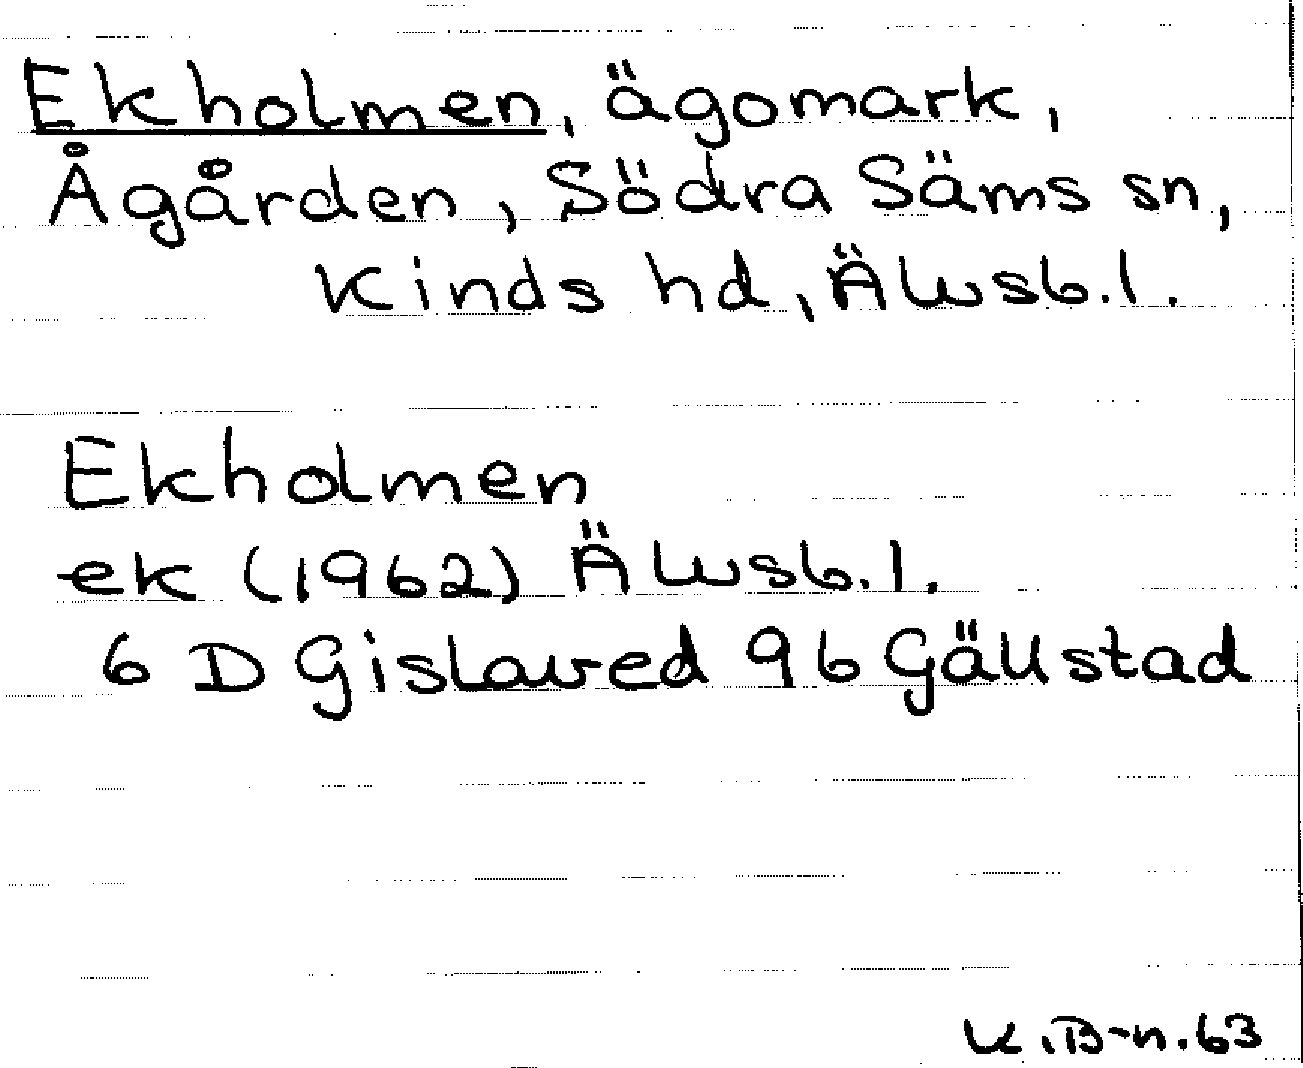 Ekholmen, ägomark,
Ågården, Södra Säms sn,
Kinds hd, Älvsb.l.
Ekholmen
ek (1962) Älvsb.l.
6 D Gislaved 9b Gällstad
K.B-n.63